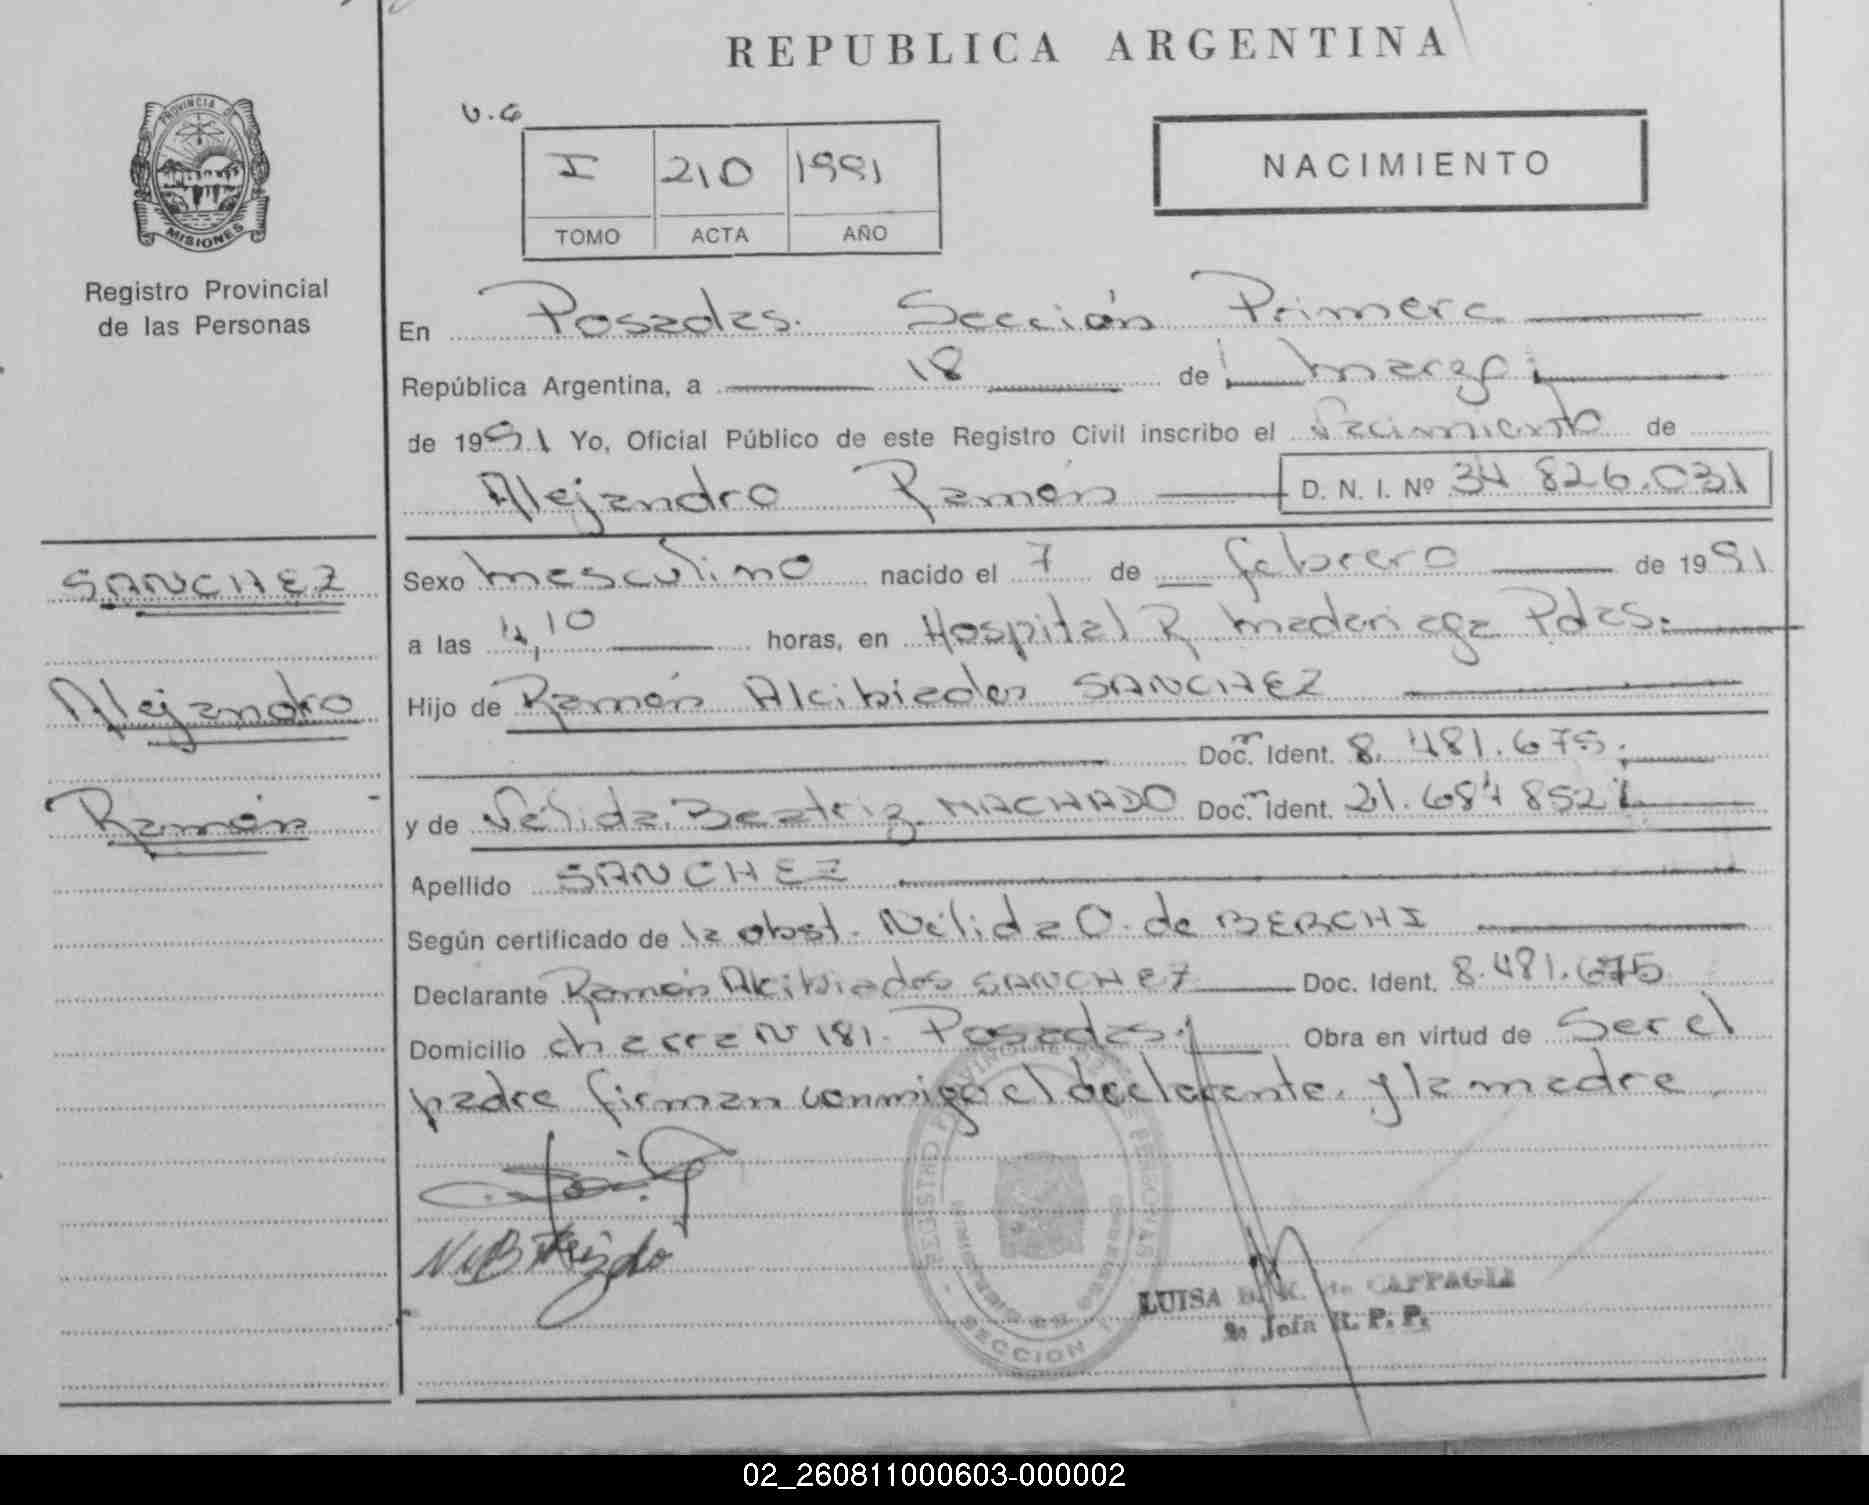 REPUBLICA ARGENTINA
PROVINCIA DE
MISIONES
Registro Provincial
de las Personas
v.G
I 210 1991
TOMO ACTA AÑO
NACIMIENTO
En Posadas. Sección Primera
República Argentina, a 18 de marzo
de 1991 Yo, Oficial Público de este Registro Civil inscribo el Nacimiento de
Alejandro Ramón D. N. I. Nº 34 826.031
SANCHEZ
Alejandro
Ramón
Sexo masculino nacido el 7 de febrero de 1991
a las 4,10 horas, en Hospital R Madariaga Pdas.
Hijo de Ramón Alcibiades SANCHEZ
Doc. Ident. 8. 481.675.
y de Nélida Beatriz MACHADO Doc. Ident. 21.684 852
Apellido SANCHEZ
Según certificado de la obst. Nélida O. de BERCHI
Declarante Ramón Alcibiades SANCHEZ Doc. Ident. 8.481.675
Domicilio chacra N 181. Posadas. Obra en virtud de Ser el
padre firman conmigo el declarante. y la madre
REGISTRO PROVINCIAL DE LAS PERSONAS
SECCION 1
LUISA de CAPPAGLI
Jefa R. P. P.
02_260811000603-000002